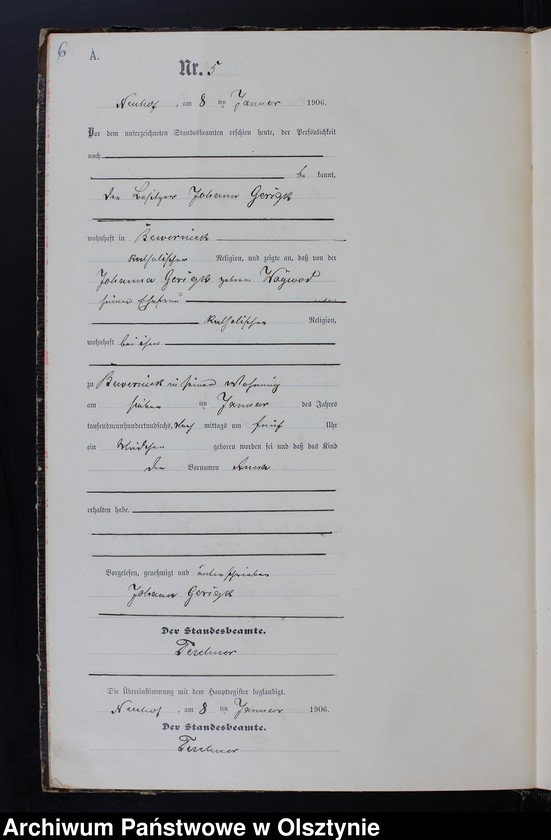 6
A.
Nr. 5
Neuhof, am 8 ten Januar 1906.
Vor dem unterzeichneten Standesbeamten erschien heute, der Persönlichkeit
nach
be kannt,
der Besitzer Johann Gerigk
wohnhaft in Bewernick
katholischer Religion, und zeigte an, daß von der
Johanna Gerigk geborn
seiner Ehefrau
katholischer Religion,
wohnhaft bei ihm
zu Bewernick in seiner Wohnung
am sieben ten Januar des Jahres
tausendneunhundertundsechs, Nach mittags um fünf Uhr
ein Mädchen geboren worden sei und daß das Kind
den Vornamen Anna
erhalten habe.
Vorgelesen, genehmigt und unterschrieben
Johann Gerigk
Der Standesbeamte.
Teschner
Die Übereinstimmung mit dem Hauptregister beglaubigt.
Neuhof, am 8 ten Januar 1906.
Der Standesbeamte.
Teschner
Archiwum Państwowe w Olsztynie